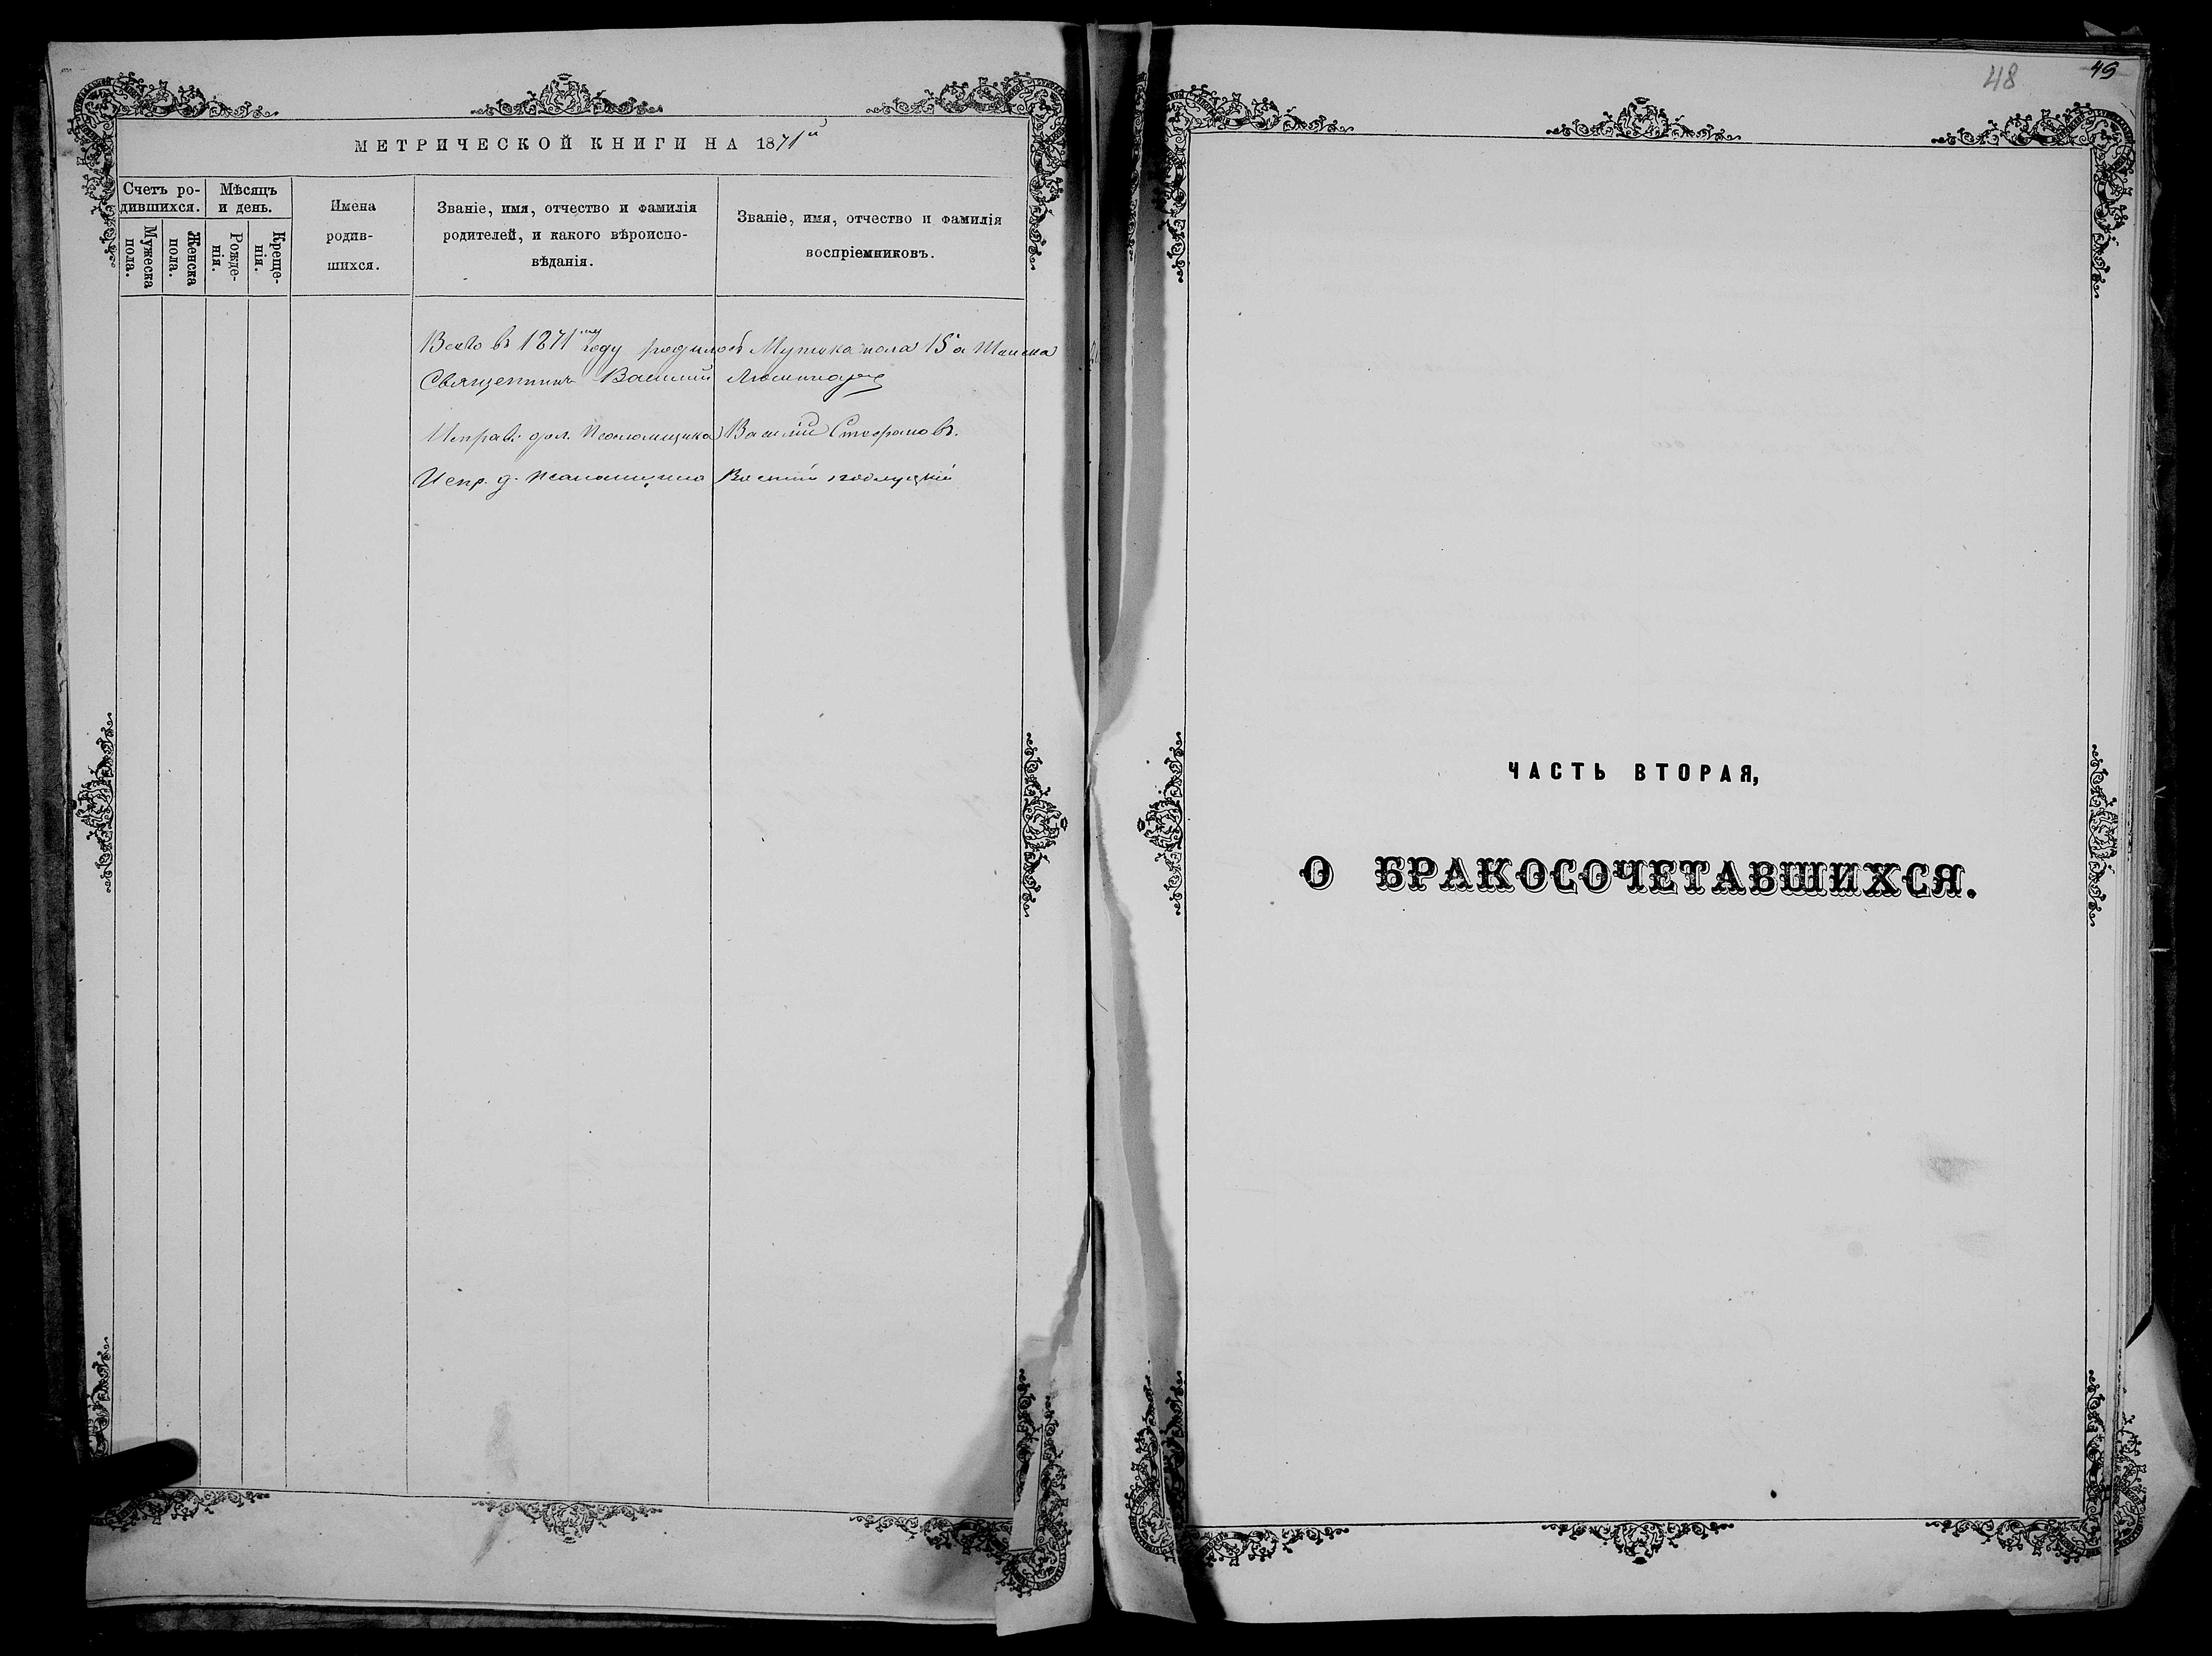 МЕТРИЧЕСКОЙ КНИГИ НА 1871й
Счетъ ро-
дившихся.
Мѣсяцъ
и день.
Мужеска
пола.
Женска
пола.
Рожде-
нія.
Креще-
нія.
Имена
родив-
шихся.
Званіе, имя, отчество и фамилія
родителей, и какого вѣроиспо-
вѣданія.
Званіе, имя, отчество и фамилія
воспріемниковъ.
Всего въ 1871 году родилось Мужска пола 15 а Женска
Священникъ Василий
Исправ. дол. Псаломщика Василій Стефановъ.
Испр. д. Псаломщика Василій
48
49
ЧАСТЬ ВТОРАЯ,
О БРАКОСОЧЕТАВШИХСЯ.